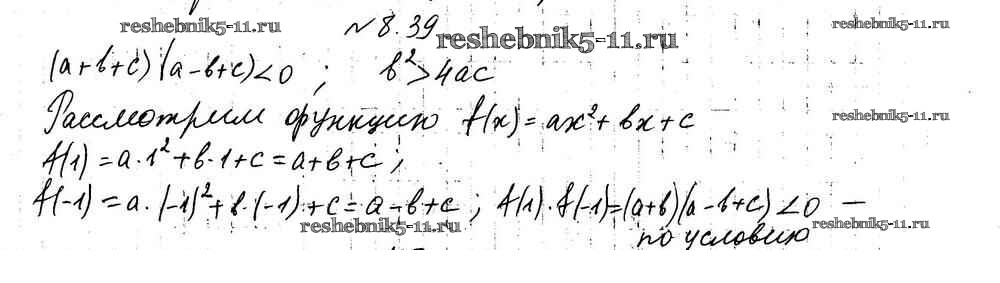 reshebnik5-11.ru
№ 8.39
reshebnik5-11.ru
reshebnik5-11.ru
(a+b+c)(a-b+c)<0 ; b²>4ac
Рассмотрим функцию f(x)=ax²+bx+c
reshebnik5-11.ru
f(1)=a·1²+b·1+c=a+b+c;
f(-1)=a·(-1)²+b·(-1)+c=a-b+c; f(1)·f(-1)=(a+b)(a-b+c)<0 —
reshebnik5-11.ru
reshebnik5-11.ru
по условию